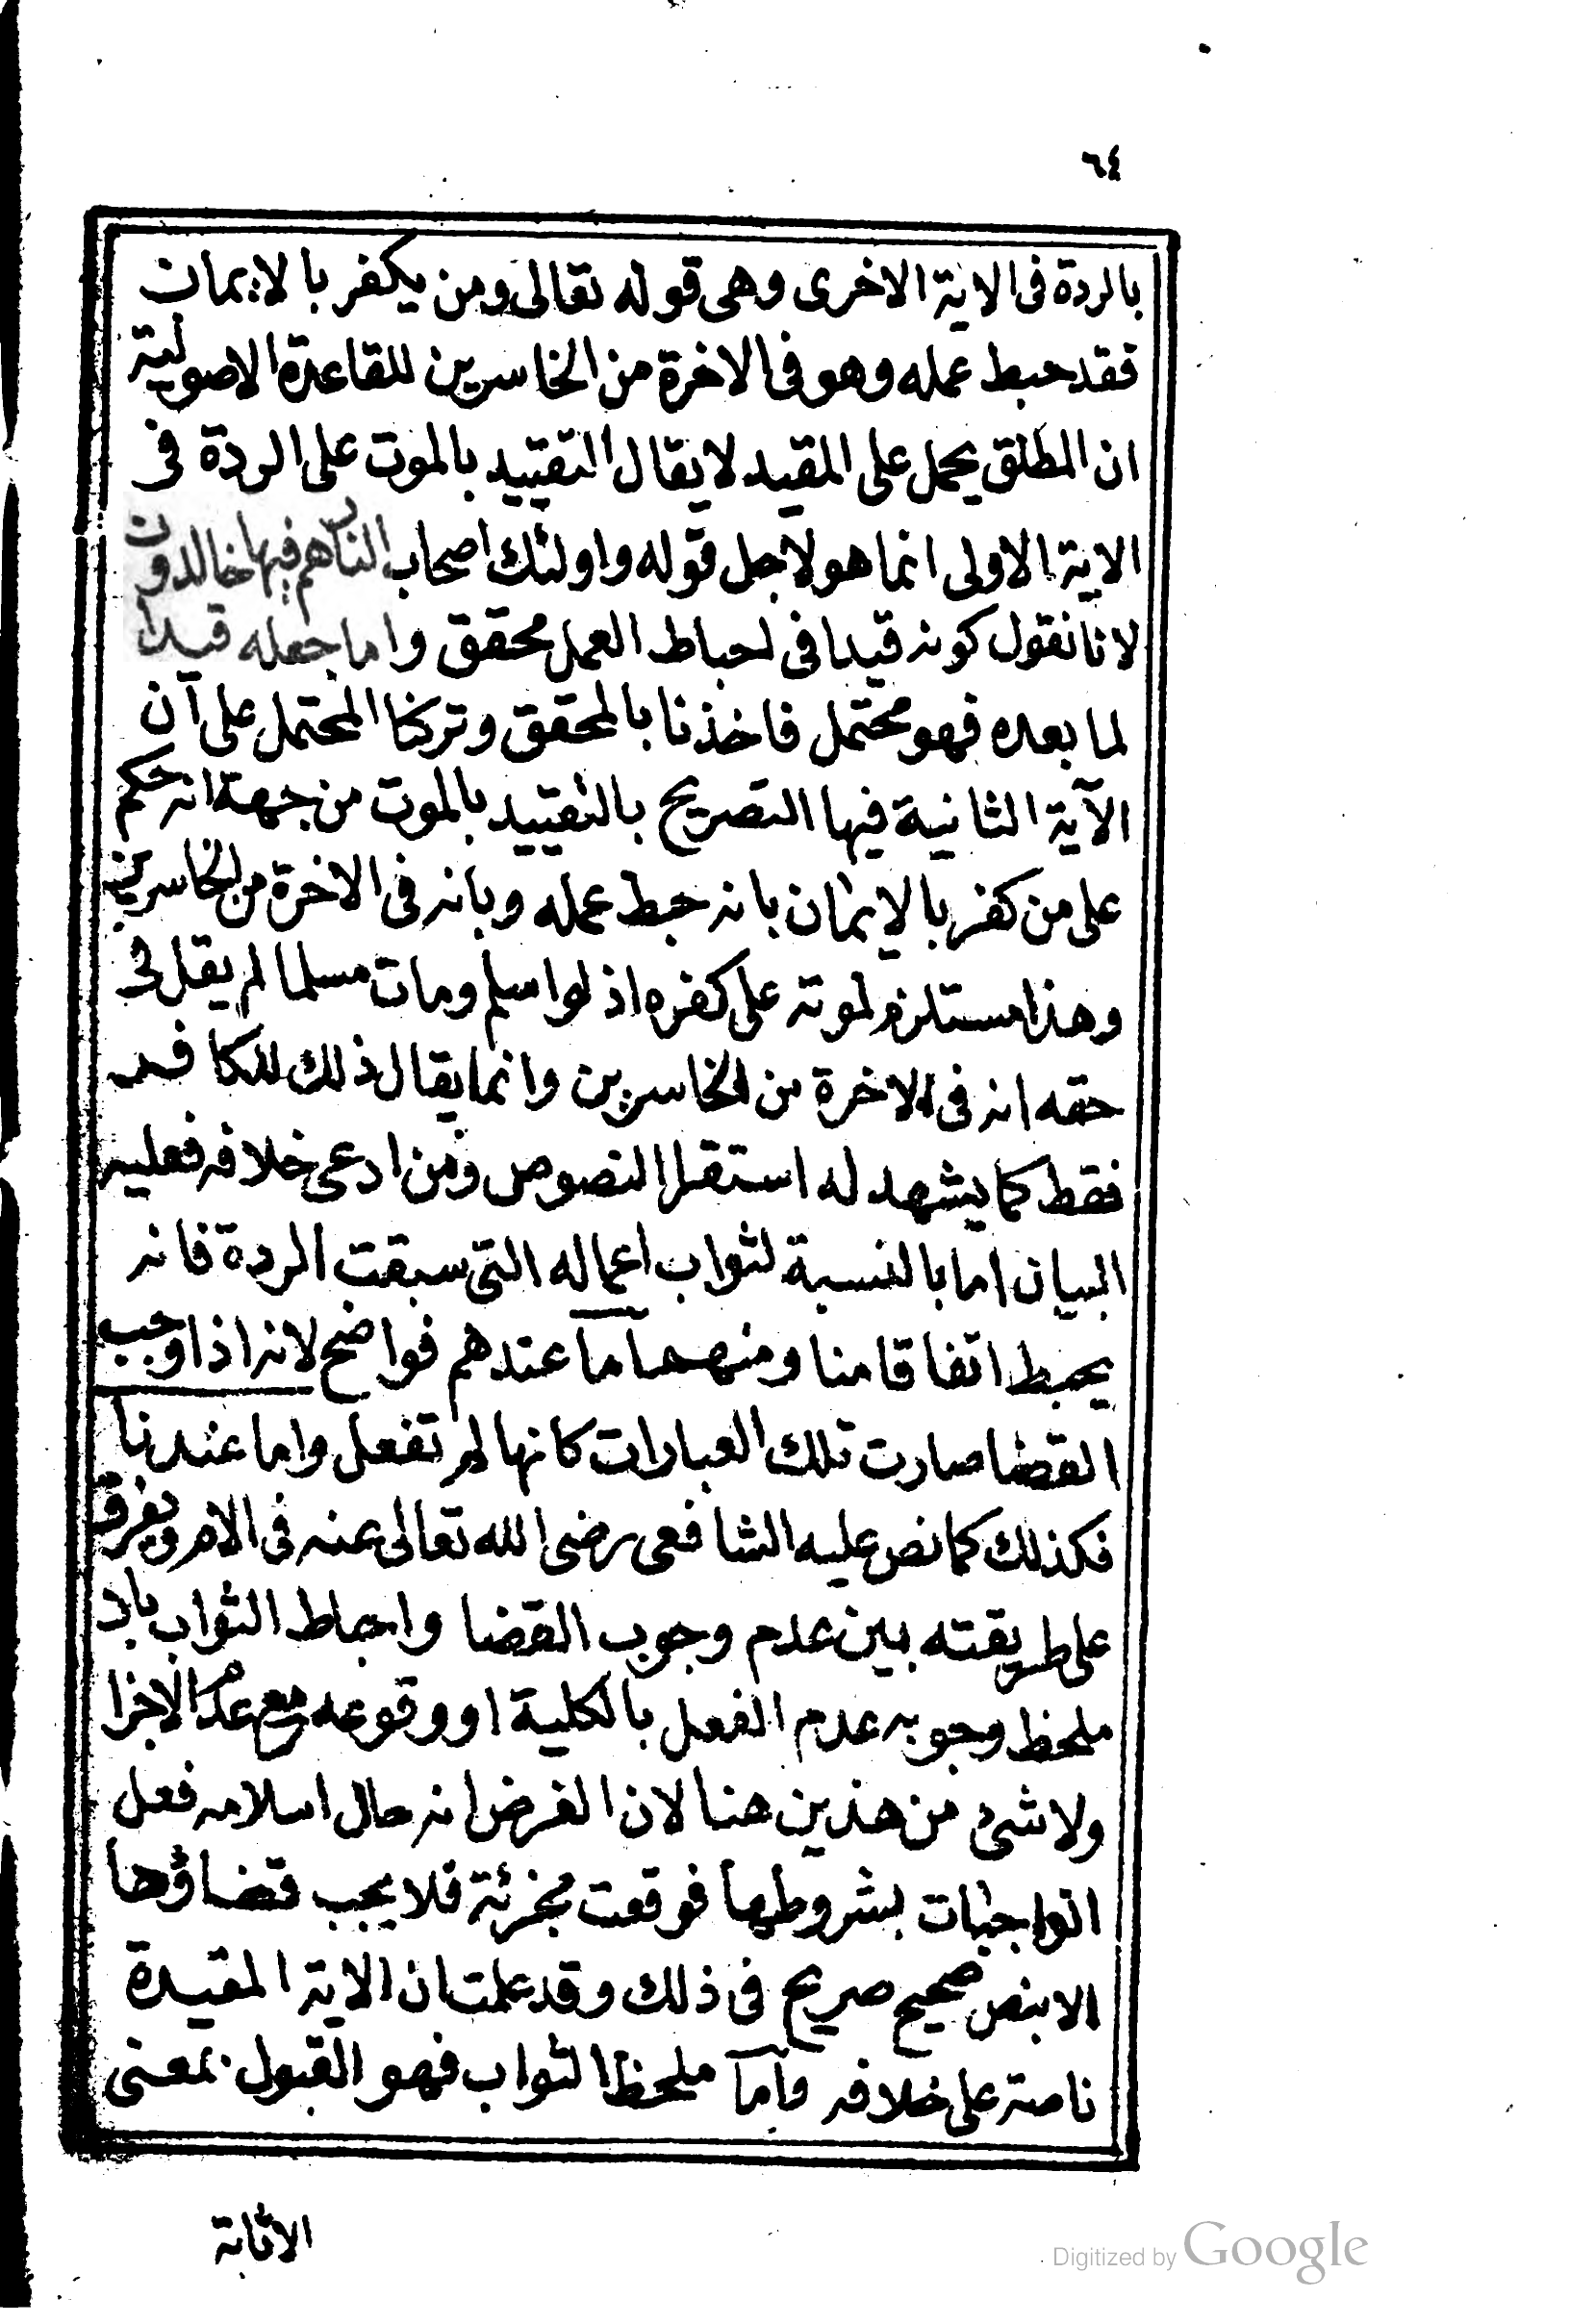 ٦٤
بالردة فى الاية الاخرى وهى قوله تعالى ومن يكفر بالايمان
فقد حبط عمله وهو فى الاخرة من الخاسرين للقاعدة الاصولية
ان المطلق يحمل على المقيد لا يقال التقييد بالموت على الردة فى
الاية الاولى انما هو لاجل قوله واولئك اصحاب النار هم فيها خالدون
لانا نقول كونه قيدا فى احباط العمل محقق واما جعله قيدا
لما بعده فهو محتمل فاخذنا بالمحقق وتركنا المحتمل على ان
الآية الثانية فيها التصريح بالتقييد بالموت من جهة انه حكم
على من كفر بالايمان بانه حبط عمله وبانه فى الاخرة من الخاسرين
وهذا مستلزم لموته على كفره اذ لو اسلم ومات مسلما لم يقل فى
حقه انه فى الاخرة من الخاسرين وانما يقال ذلك للكافر
فقط كما يشهد له استقرا النصوص ومن ادعى خلافه فعليه
البيان اما بالنسبة لثواب اعماله التى سبقت الردة فانه
يحبط اتفاقا منا ومنهم اما عندهم فواضح لانه اذا وجب
القضا صارت تلك العبارات كانها لم تفعل واما عندنا
فكذلك كما نص عليه الشافعى رضى الله تعالى عنه فى الام ويفرق
على طريقته بين عدم وجوب القضا واحباط الثواب بان
ملحظ وجوبه عدم الفعل بالكلية او وقوعه مع عدم الاجزا
ولا شئ من هذين هنا لان الغرض انه حال اسلامه فعل
الواجبات بشروطها فوقعت مجزئة فلا يجب قضاؤها
الا بنص صحيح صريح فى ذلك وقد علمت ان الاية المقيدة
ناصة على خلافه واما ملحظ الثواب فهو القبول بمعنى
الاثابة
Digitized by Google